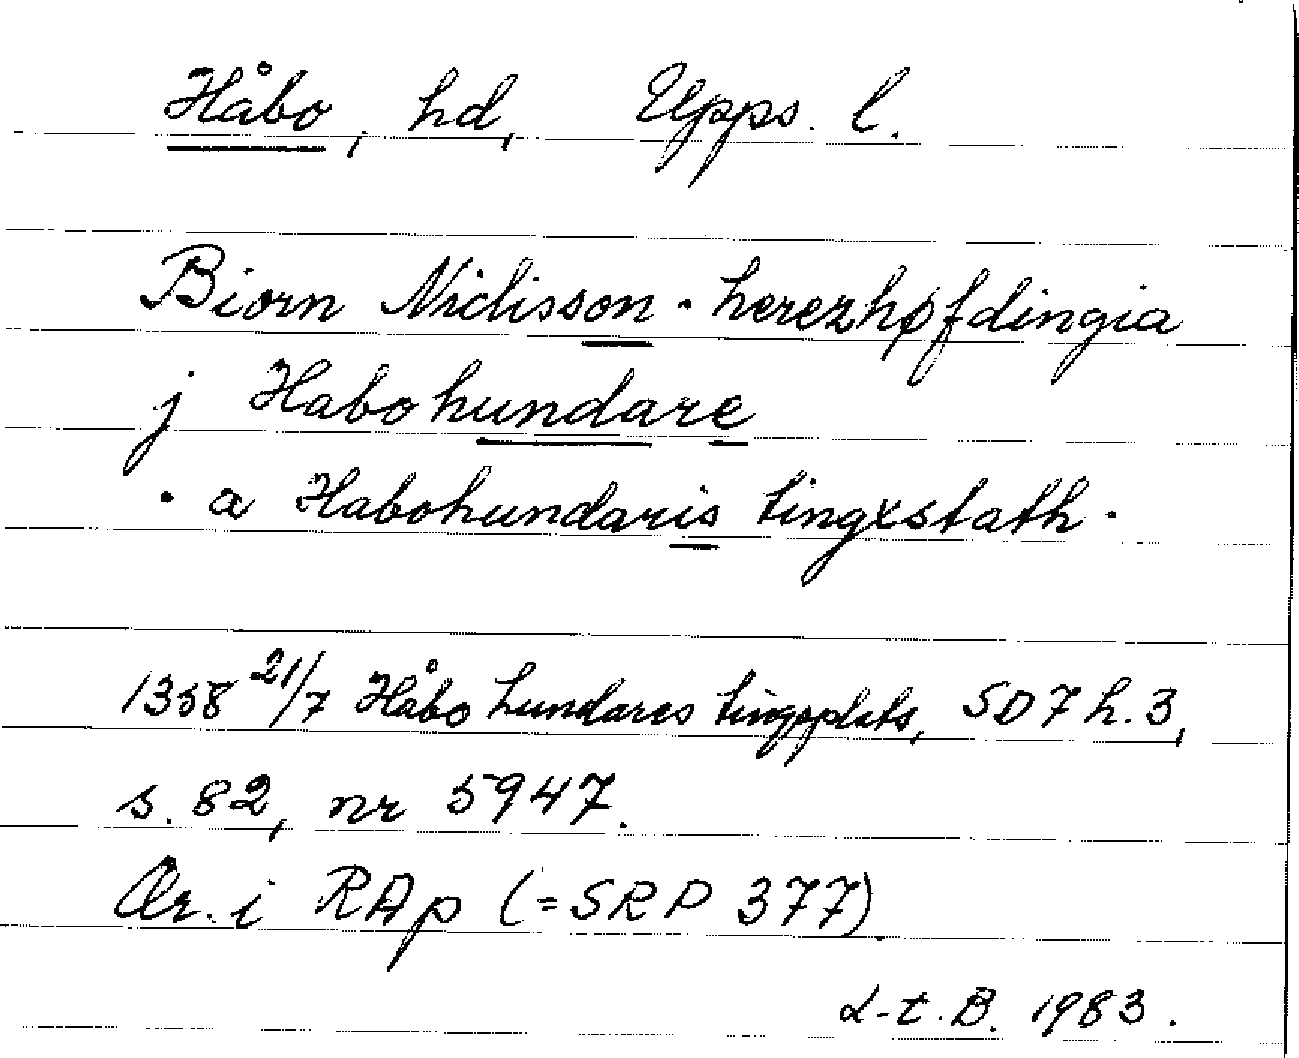 Håbo, hd, Upps. l.
Biorn Niclisson · herezhøfdingia
j Habohundare
· a Habohundaris tingxstath ·
1358 21/7 Håbo hundares tingsplats, SD 7 h. 3,
s. 82, nr 5947.
Or. i RAp (= SRP 377).
L-t. B. 1983.